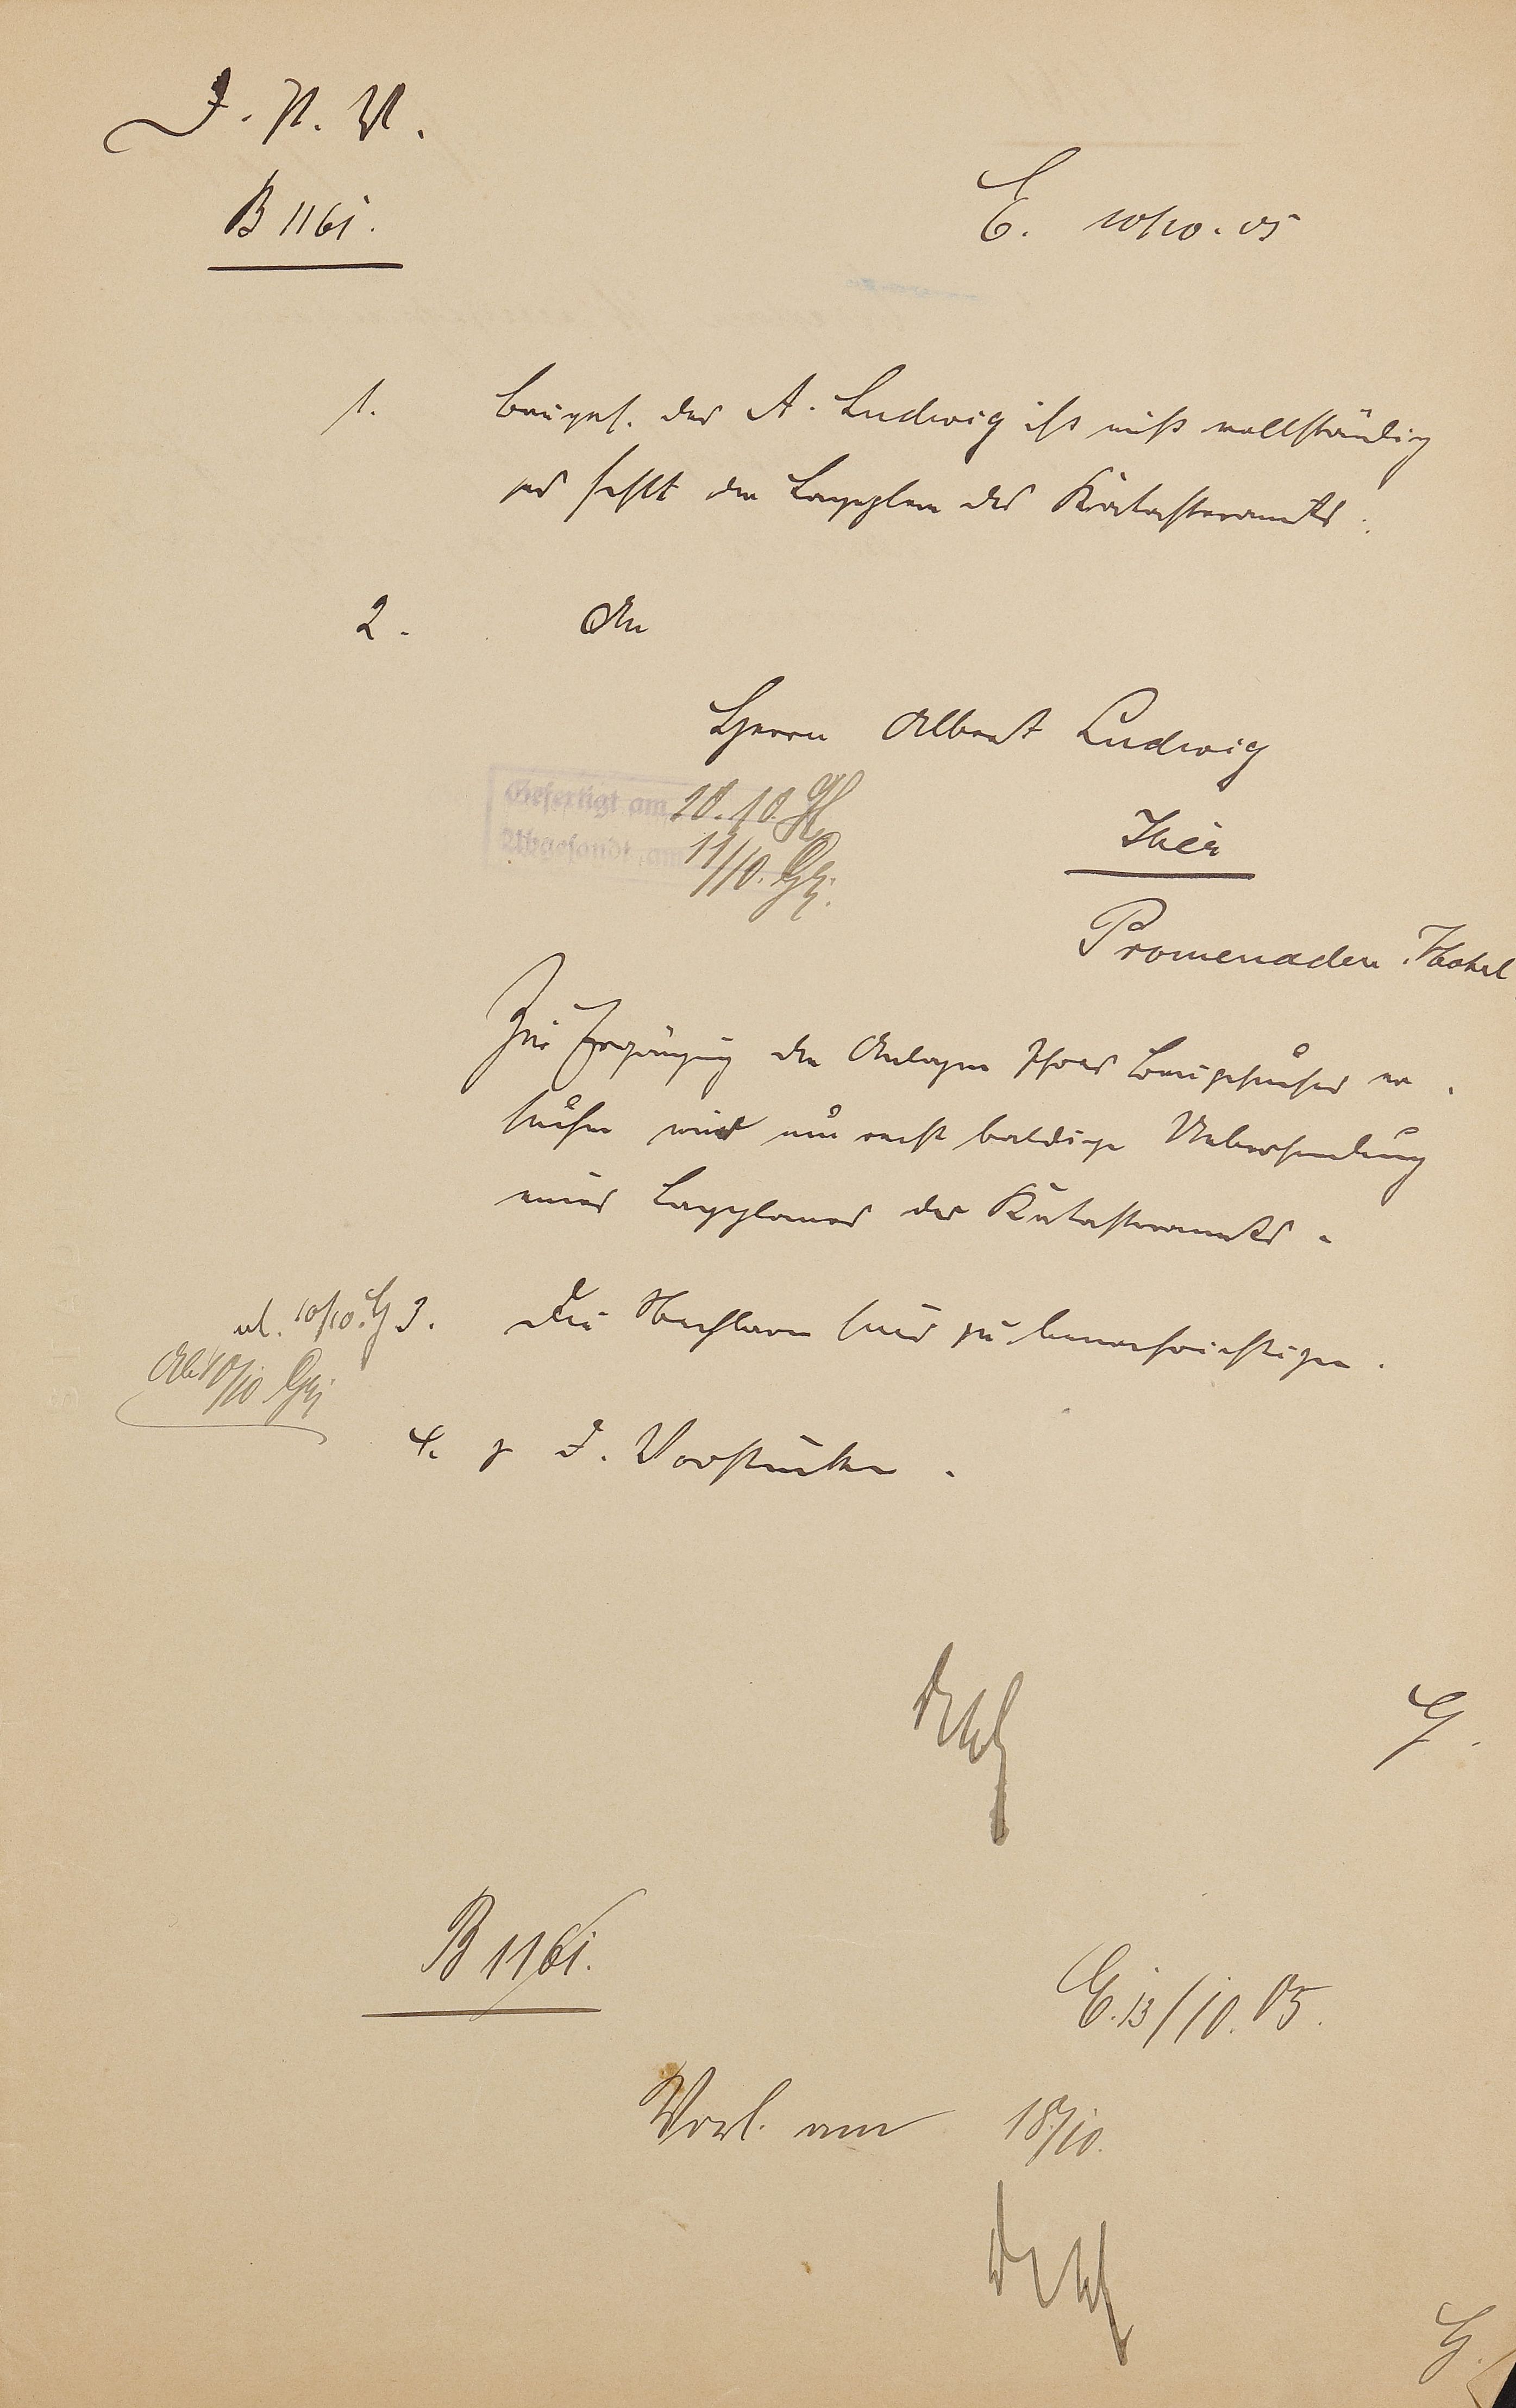 D. P. V.
B 1161.
E. 10/10. 05
1. Bauges. des A. Ludwig ist nicht vollständig
es fehlt der Lageplan des Katasteramts.
2. An
Herrn Albert Ludwig
Gefertigt am 10. 10.
Abgesandt am 11/10.
Hier
Promenaden Hotel
Zur Ergänzung der Anlagen Ihres Baugesuches er-
suchen wir um recht baldige Uebersendung
eines Lageplanes des Katasteramts.
10/10. 3. Die Nachbarn sind zu benachrichtigen.
10/10
4. z. d. Vorstücken.
B 1161.
E. 13/10. 05.
Vorl. am 18/10.